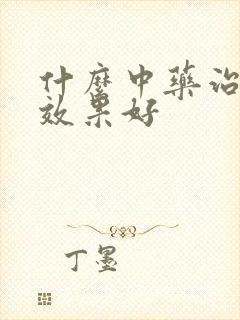 什麼中藥治
效果好
丁墨